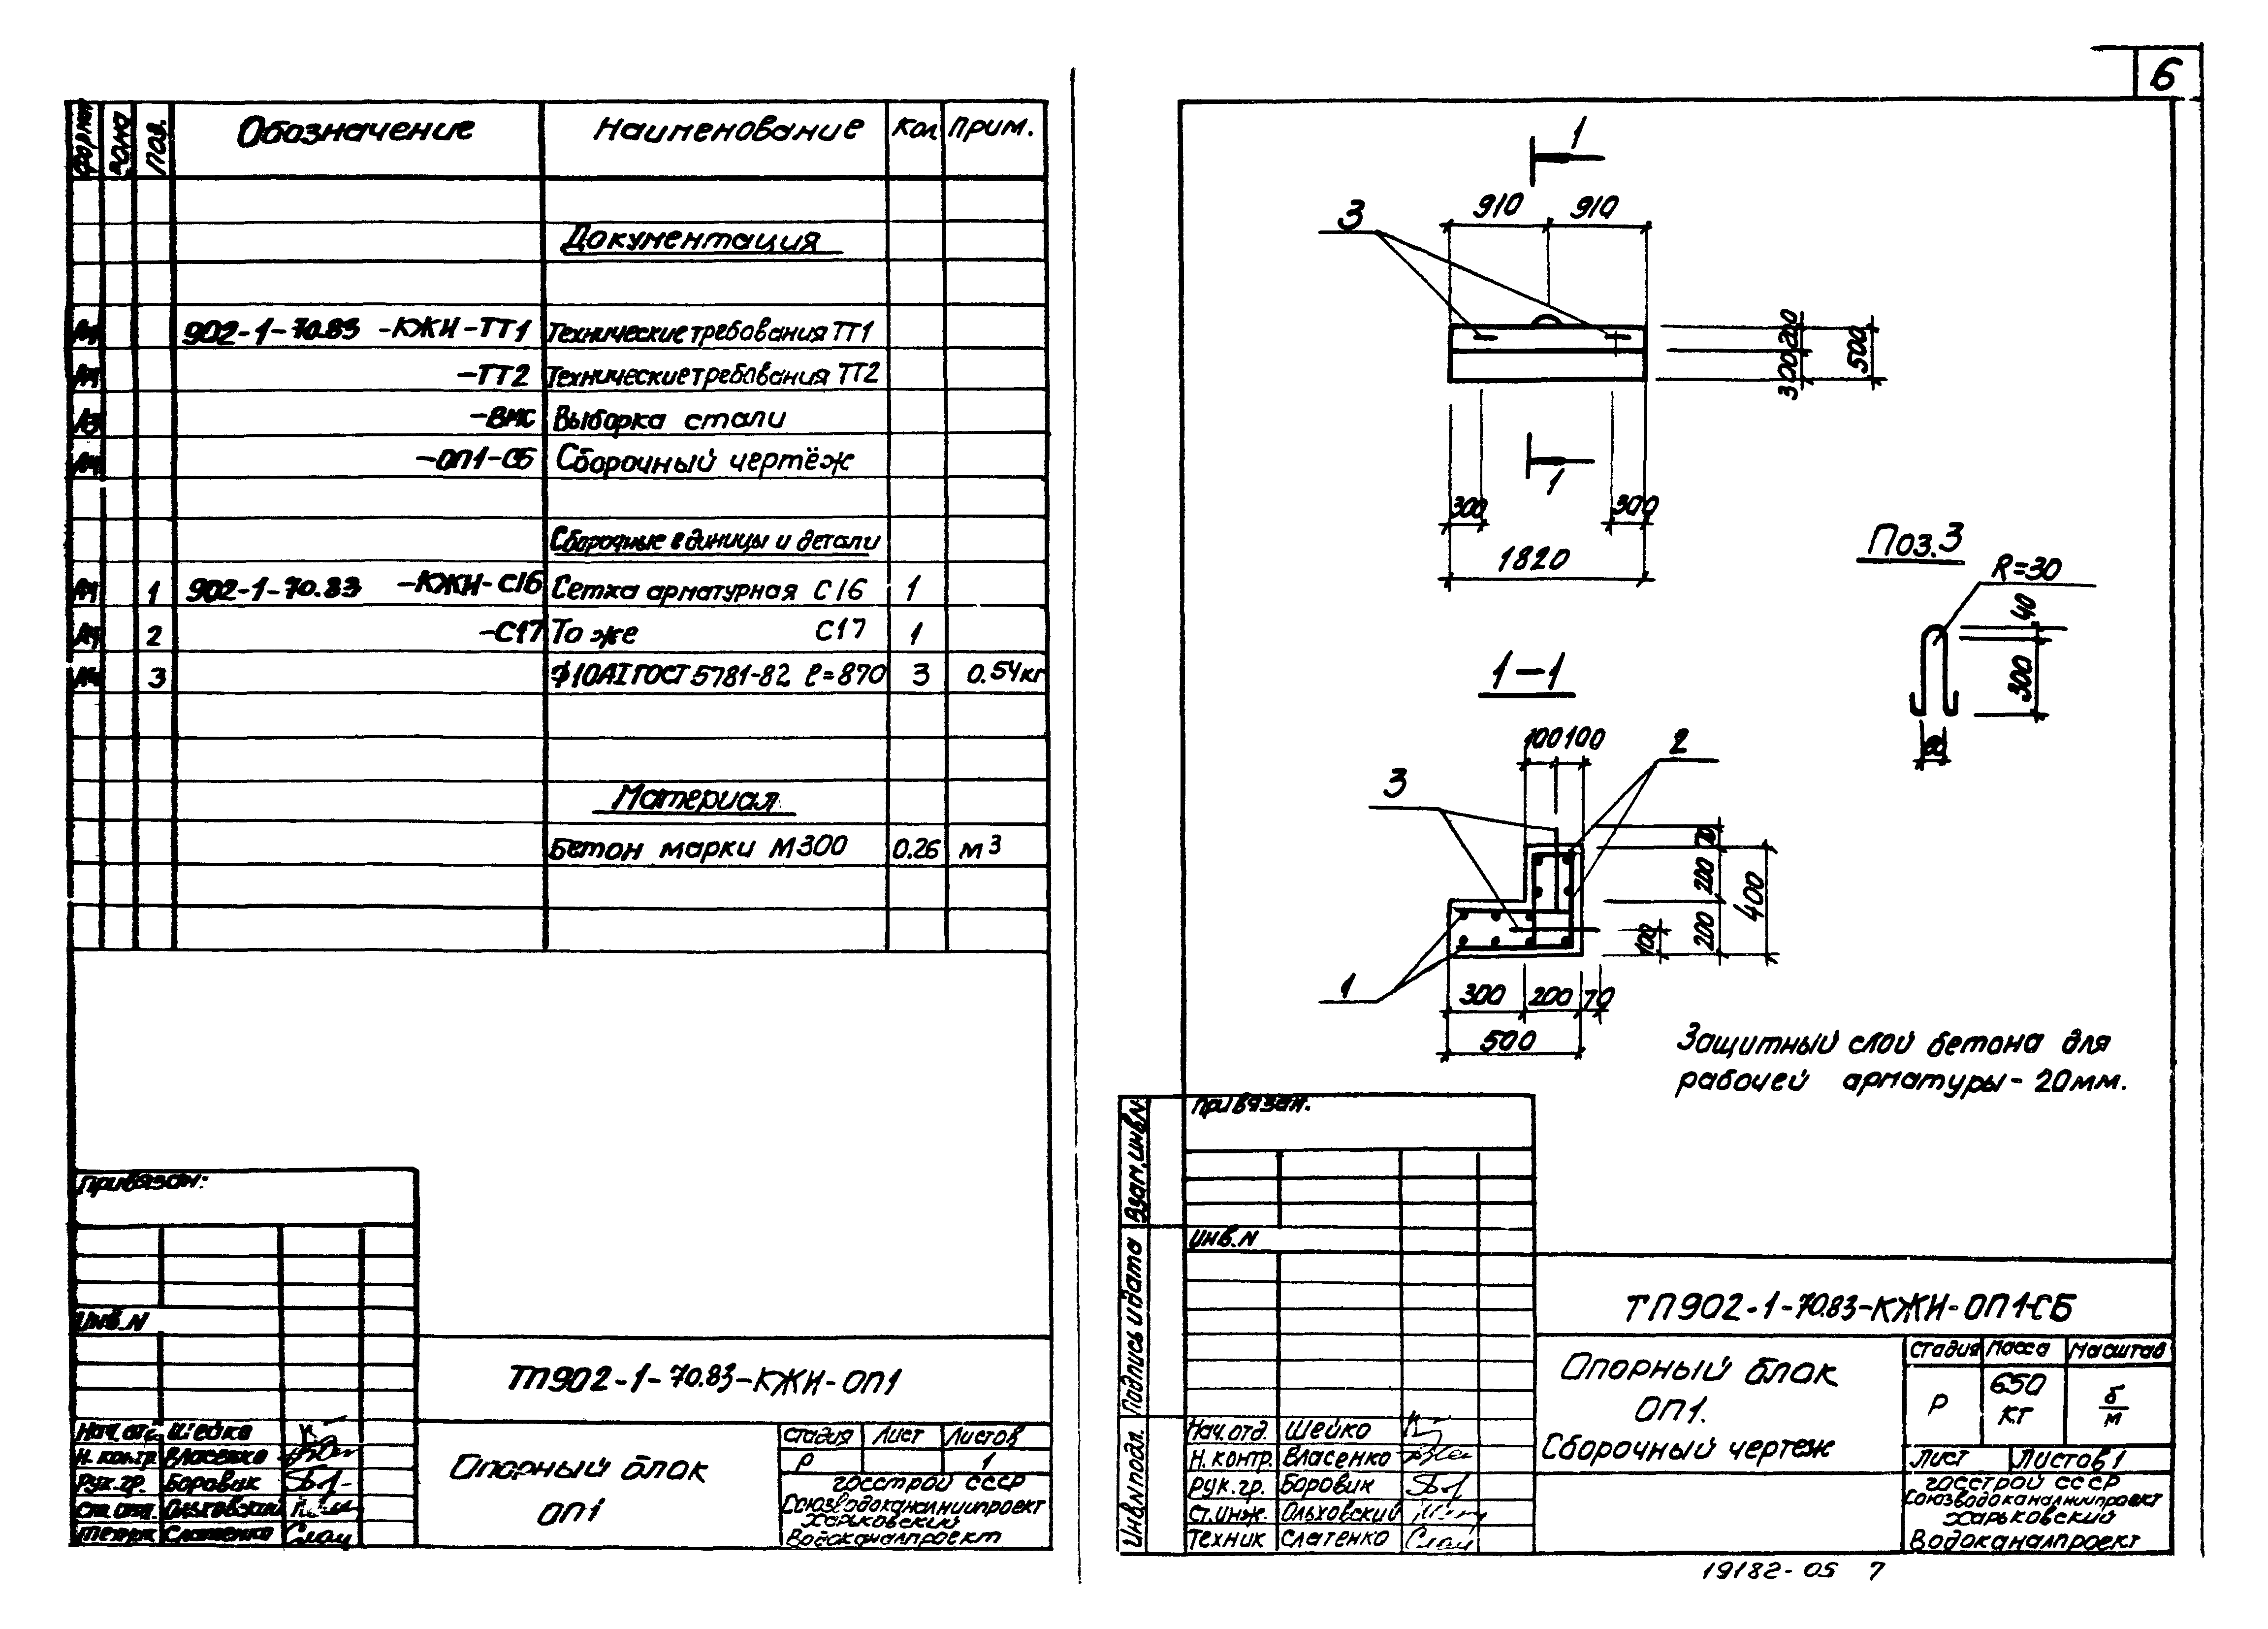 6
Формат Зона Поз. Обозначение Наименование Кол Прим.
Документация
А4 902-1-70.83 -КЖИ-ТТ1 Технические требования ТТ1
А4 -ТТ2 Технические требования ТТ2
А3 -ВМС Выборка стали
А4 -ОП1-СБ Сборочный чертёж
Сборочные единицы и детали
А4 1 902-1-70.83 -КЖИ-С16 Сетка арматурная С16 1
А4 2 -С17 То же С17 1
А4 3 Ф10АI ГОСТ 5781-82 ℓ=870 3 0.54кг
Материал
Бетон марки М300 0.26 м3
Привязан:
Инв.N
ТП902-1-70.83-КЖИ-ОП1
Нач.отд. Шейко
Н. контр. Власенко
Рук.гр. Боровик
Ст. инж. Ольховский
Техник Слатенко
Опорный блок
ОП1
стадия Лист Листов
Р 1
госстрой СССР
Союзводоканалниипроект
харьковский
Водоканалпроект
1
910 910
3
300 200
500
1
300 300
1820
Поз.3
R=30
40
300
60
1-1
100 100
2
3
70
200
400
200
100
1
300 200 70
500
Защитный слой бетона для
рабочей арматуры - 20мм.
Привязан.
Взам.инв.N
Подпись и дата
Инв.N подл.
Инв.N
ТП902-1-70.83-КЖИ-ОП1-СБ
Опорный блок
ОП1.
Сборочный чертеж
стадия Масса Масштав
Р 650 кг б/м
Лист Листов 1
госстрой СССР
Союзводоканалниипроект
харьковский
Водоканалпроект
Нач.отд. Шейко
Н. контр. Власенко
Рук.гр. Боровик
Ст.инж. Ольховский
Техник Слатенко
19182-05 7